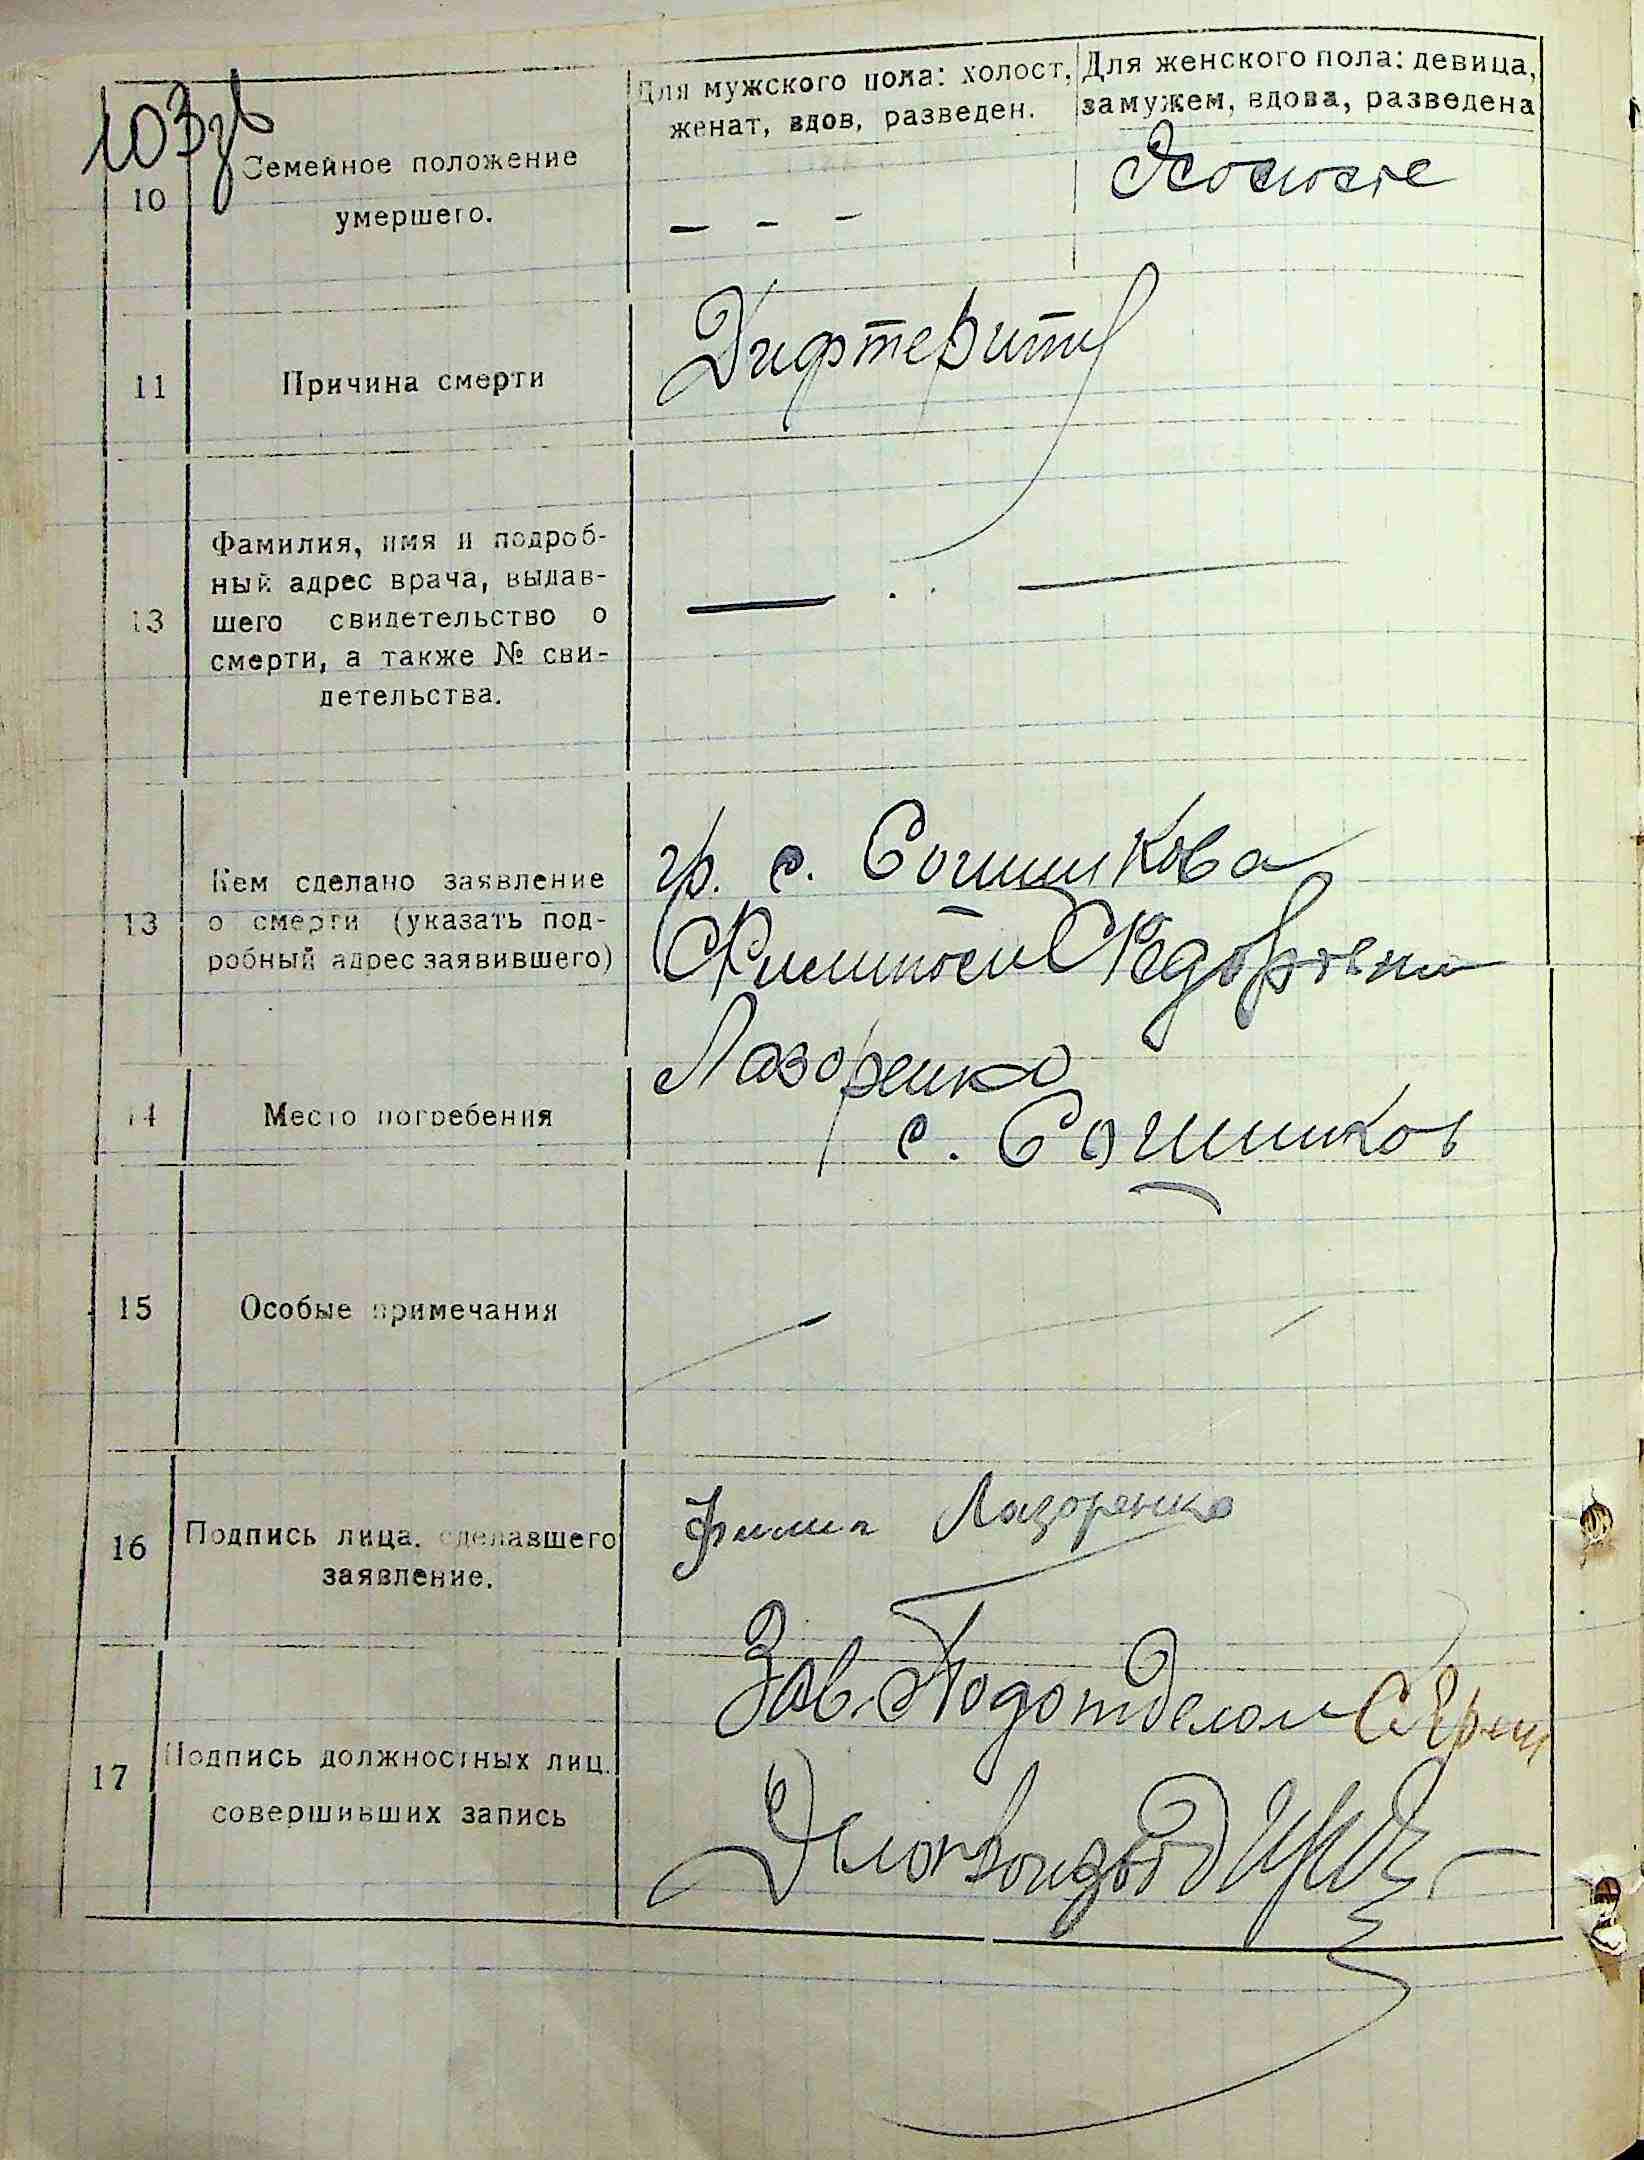 103 зв
Для мужского пола: холост,
женат, вдов, разведен.
Для женского пола: девица,
замужем, вдова, разведена
10
Семейное положение
умершего.
- - -
11
Причина смерти
Дифтерить
13
Фамилия, имя и подроб-
ный адрес врача, выдав-
шего свидетельство о
смерти, а также № сви-
детельства.
13
Кем сделано заявление
о смерти (указать под-
робный адрес заявившего)
гр. с. Сошникова
Федоровни
Лазоренко
14
Место погребения
с. Сошников
15
Особые примечания
16
Подпись лица, сделавшего
заявление.
Филип Лазоренко
17
Подпись должностных лиц,
совершивших запись
Зав. Подотделом